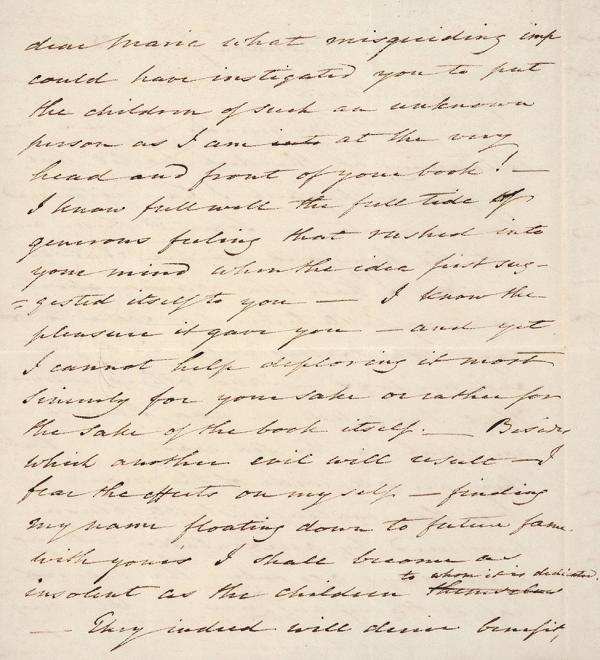 dear Maria what misguiding imp
could have instigated you to put
the children of such an unknown
person as I am into at the very
head and front of your book! —
I know full well the full tide of
generous feeling that rushed into
your mind when the idea first sug-
=gested itself to you — I know the
pleasure it gave you — and yet
I cannot help deploring it most
sincerely for your sake or rather for
the sake of the book itself. — Besides
which another evil will result — I
fear the effects on myself — finding
my name floating down to future fame
with yours I shall become as
to whom it is dedicated.
insolent as the children themselves
— They indeed will derive benefit,